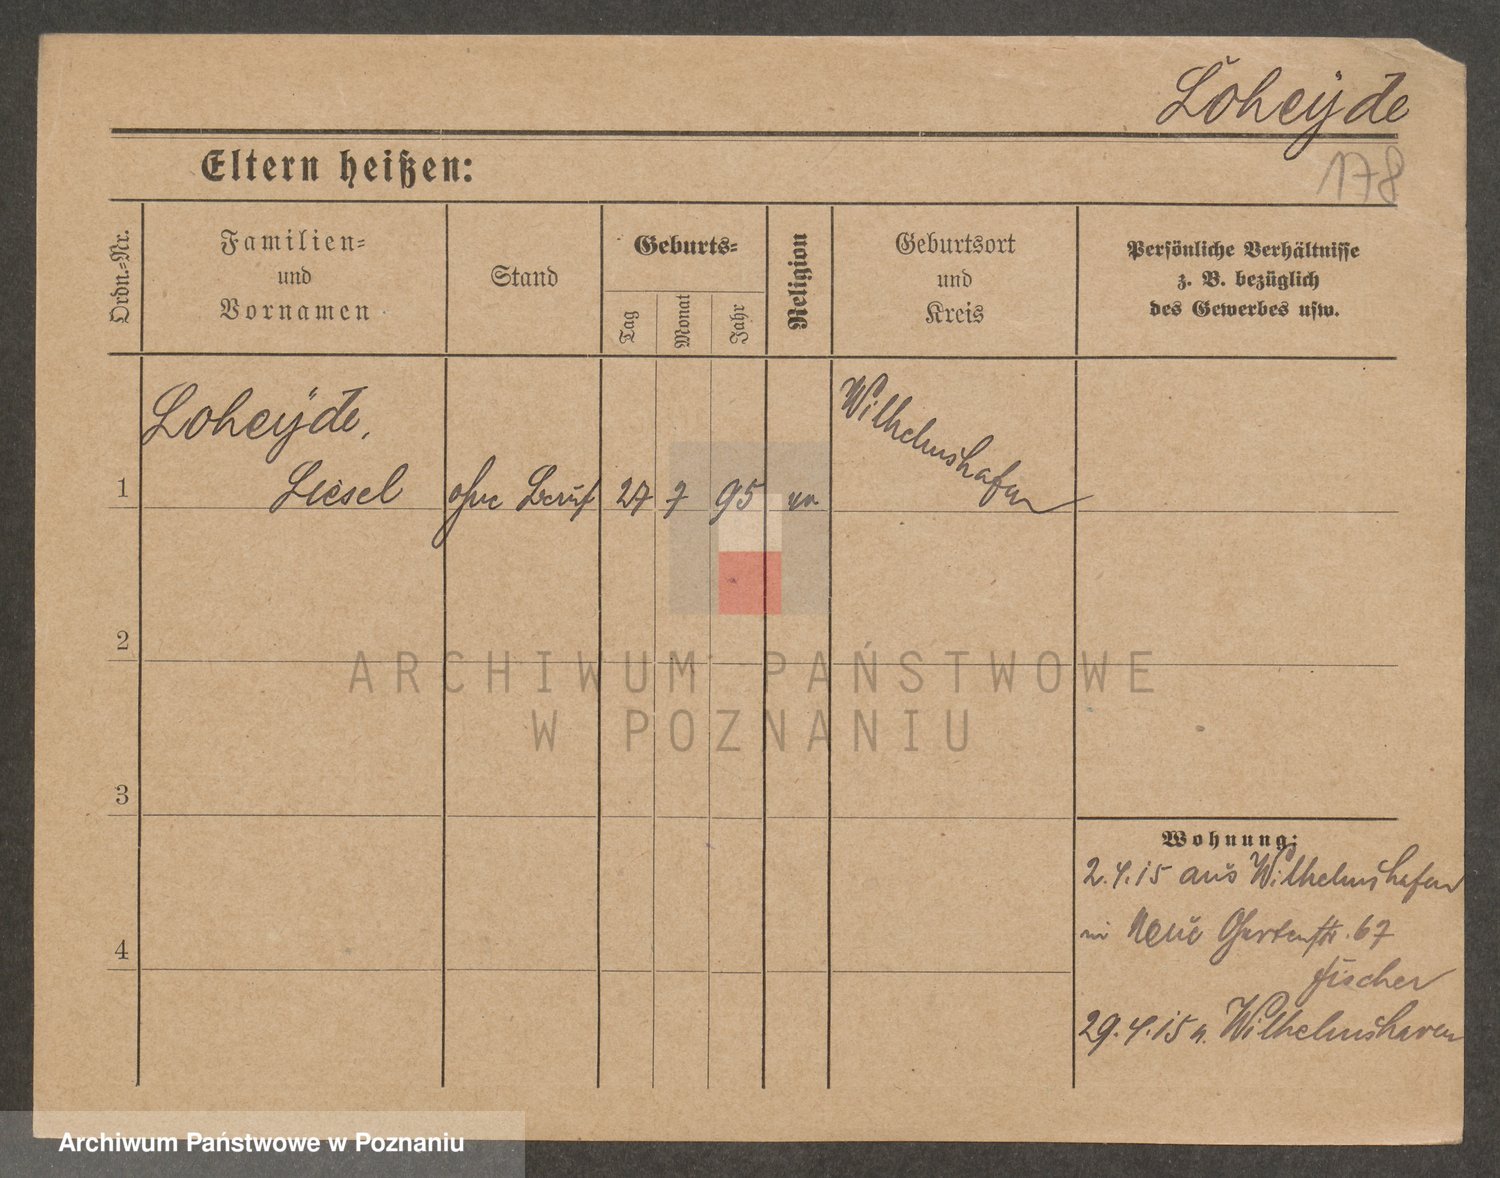 Loheÿde
178
Eltern heißen:
Ordn.-Nr.
Familien-
und
Vornamen
Stand
Geburts-
Tag
Monat
Jahr
Religion
Geburtsort
und
Kreis
Persönliche Verhältnisse
z. B. bezüglich
des Gewerbes usw.
Loheÿde,
1 Liesel ohne Beruf 27 7 95 ev Wilhelmshafen
2
3
4
Wohnung:
2.4.15 aus Wilhelmshafen
in Neue Gartenstr. 67
Fischer
29.4.15 n. Wilhelmshaven
ARCHIWUM PAŃSTWOWE
W POZNANIU
Archiwum Państwowe w Poznaniu